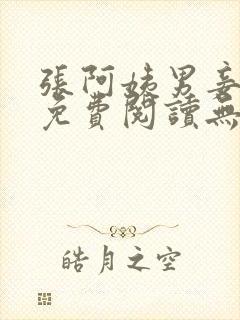 張阿姨男妾
免費閱讀無
皓月之空